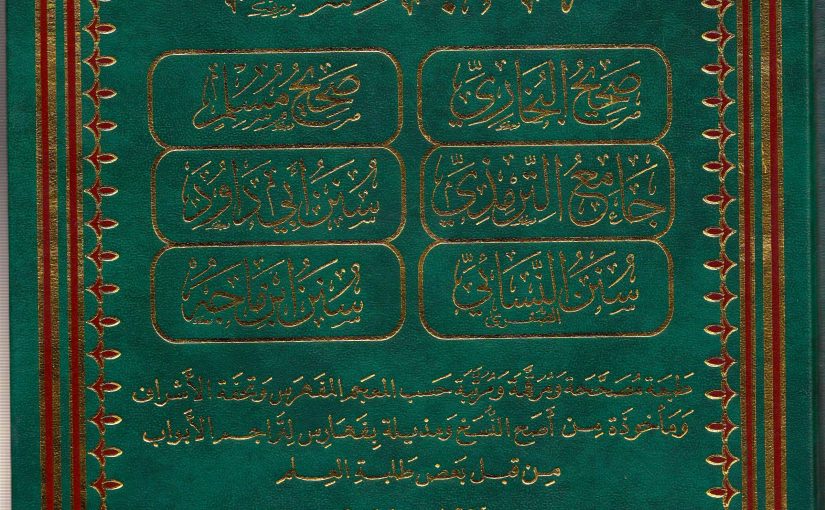 صَحِيحُ البُخَارِيِّ
صَحِيحُ مُسْلِمٍ
جَامِعُ التِّرْمِذِيِّ
سُنَنُ أَبِي دَاوُدَ
سُنَنُ النَّسَائِيِّ
الصُّغْرَى
سُنَنُ ابْنِ مَاجَه
طَبْعَة مُصَحَّحَة وَمُرَقَّمَة وَمُرَتَّبَة حَسَب المُعْجَم المُفَهْرَس وَتُحْفَة الأَشْرَاف
وَمَأْخُوذَة مِن أَصَحّ النُّسَخ وَمُذَيَّلَة بِفَهَارِس لِتَرَاجِم الأَبْوَاب
مِن قِبَل بَعْض طَلَبَةِ العِلْم